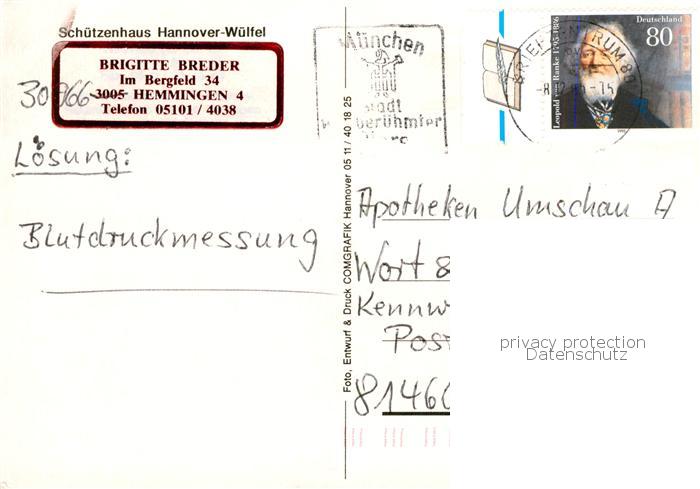 Schützenhaus Hannover-Wülfel
BRIGITTE BREDER
Im Bergfeld 34
30966 3005 HEMMINGEN 4
Telefon 05101 / 4038
Lösung:
Blutdruckmessung
Foto, Entwurf & Druck COMGRAFIK Hannover 05 11 / 40 18 25
München
Stadt
berühmter
BRIEFZENTRUM 80
Deutschland
80
Leopold von Ranke 1795-1886
Apotheken Umschau A
Wort &
Kennw
Post
81466
privacy protection
Datenschutz